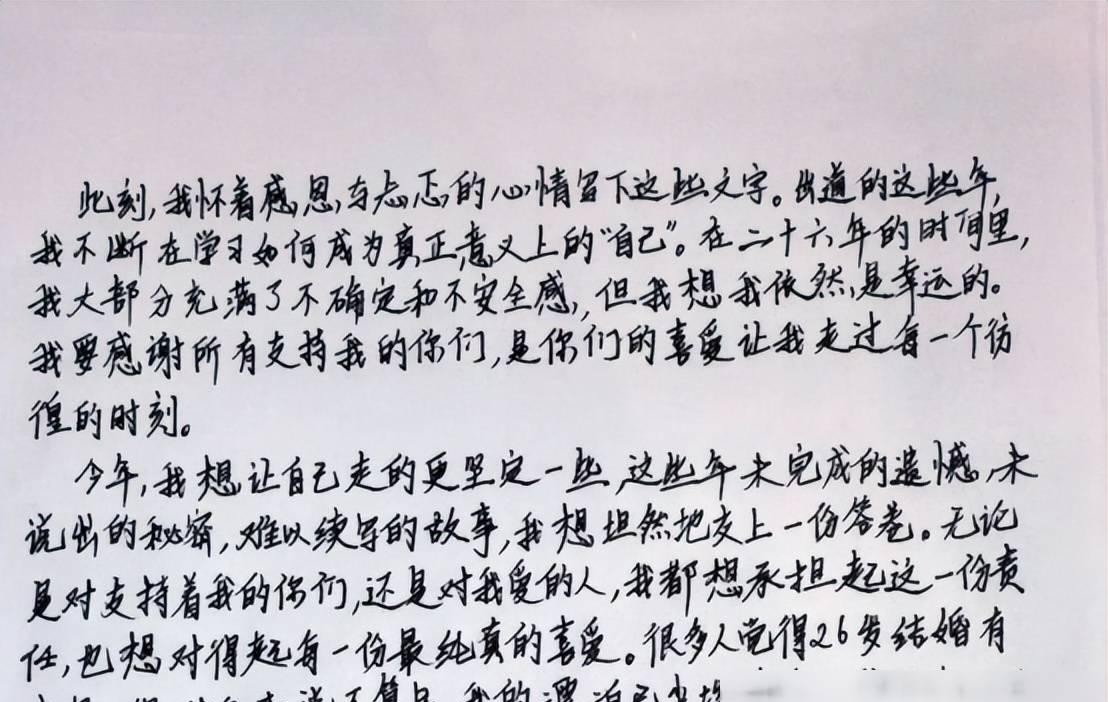 此刻,我怀着感恩与忐忑的心情留下这些文字。出道的这些年,
我不断在学习如何成为真正意义上的“自己”。在二十六年的时间里,
我大部分充满了不确定和不安全感,但我想我依然是幸运的。
我要感谢所有支持我的你们,是你们的喜爱让我走过每一个彷
徨的时刻。
今年,我想让自己走的更坚定一些,这些年未完成的遗憾,未
说出的秘密,难以续写的故事,我想坦然地交上一份答卷。无论
是对支持着我的你们,还是对我爱的人,我都想承担起这一份责
任,也想对得起每一份最纯真的喜爱。很多人觉得26岁结婚有
我的漂泊已